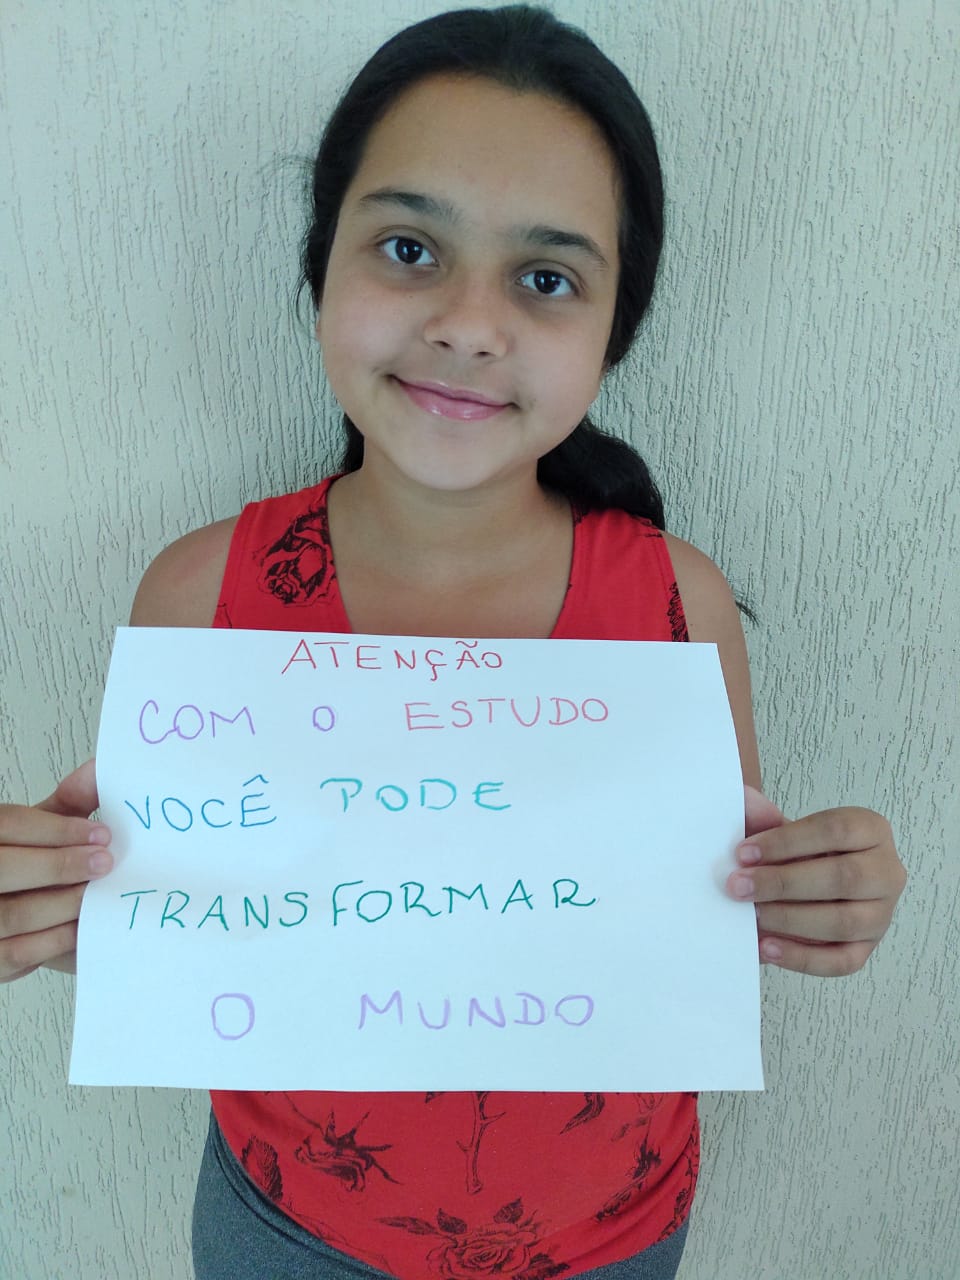 ATENÇÃO
COM O ESTUDO
VOCÊ PODE
TRANSFORMAR
O MUNDO